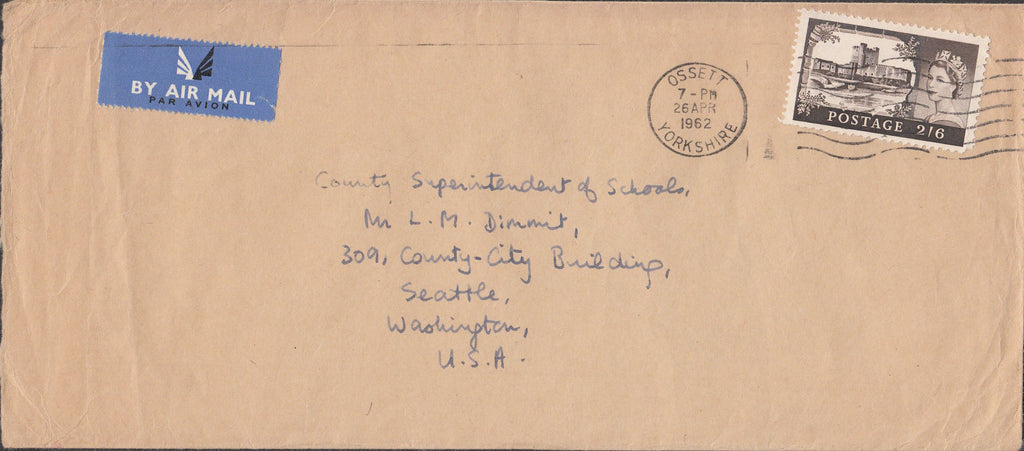 BY AIR MAIL
PAR AVION
OSSETT
7-PM
26 APR
1962
YORKSHIRE
POSTAGE 2/6
County Superintendent of Schools,
Mr L. M. Dimmit,
309, County-City Building,
Seattle,
Washington,
U.S.A.